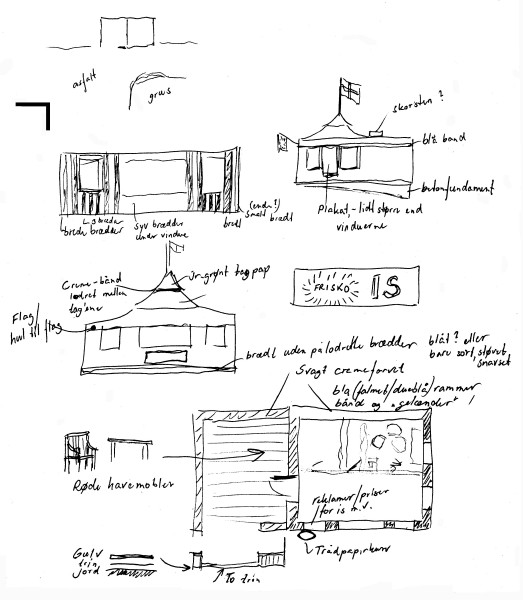 asfalt
grus
skorsten ?
blå band
betonfundament
Plakat, - lidt større end
vinduerne
brede brædder
syv brædder
under vindue
bredt
(endnu?)
Smalt
brædt
Creme-bånd
lodret mellem
tag'ene
Ir-grønt tagpap
FRISKO IS
Flag/
hul til flag
brædt uden på lodrette brædder
blåt ? eller
bare sort, støvet
snavset
Svagt cremefarvet
blå (falmet/dueblå) rammer
bånd og "gelænder"
Røde havemøbler
reklamer/priser
for is m.v.
Trådpapirkurv
Gulv
trin
jord
To trin